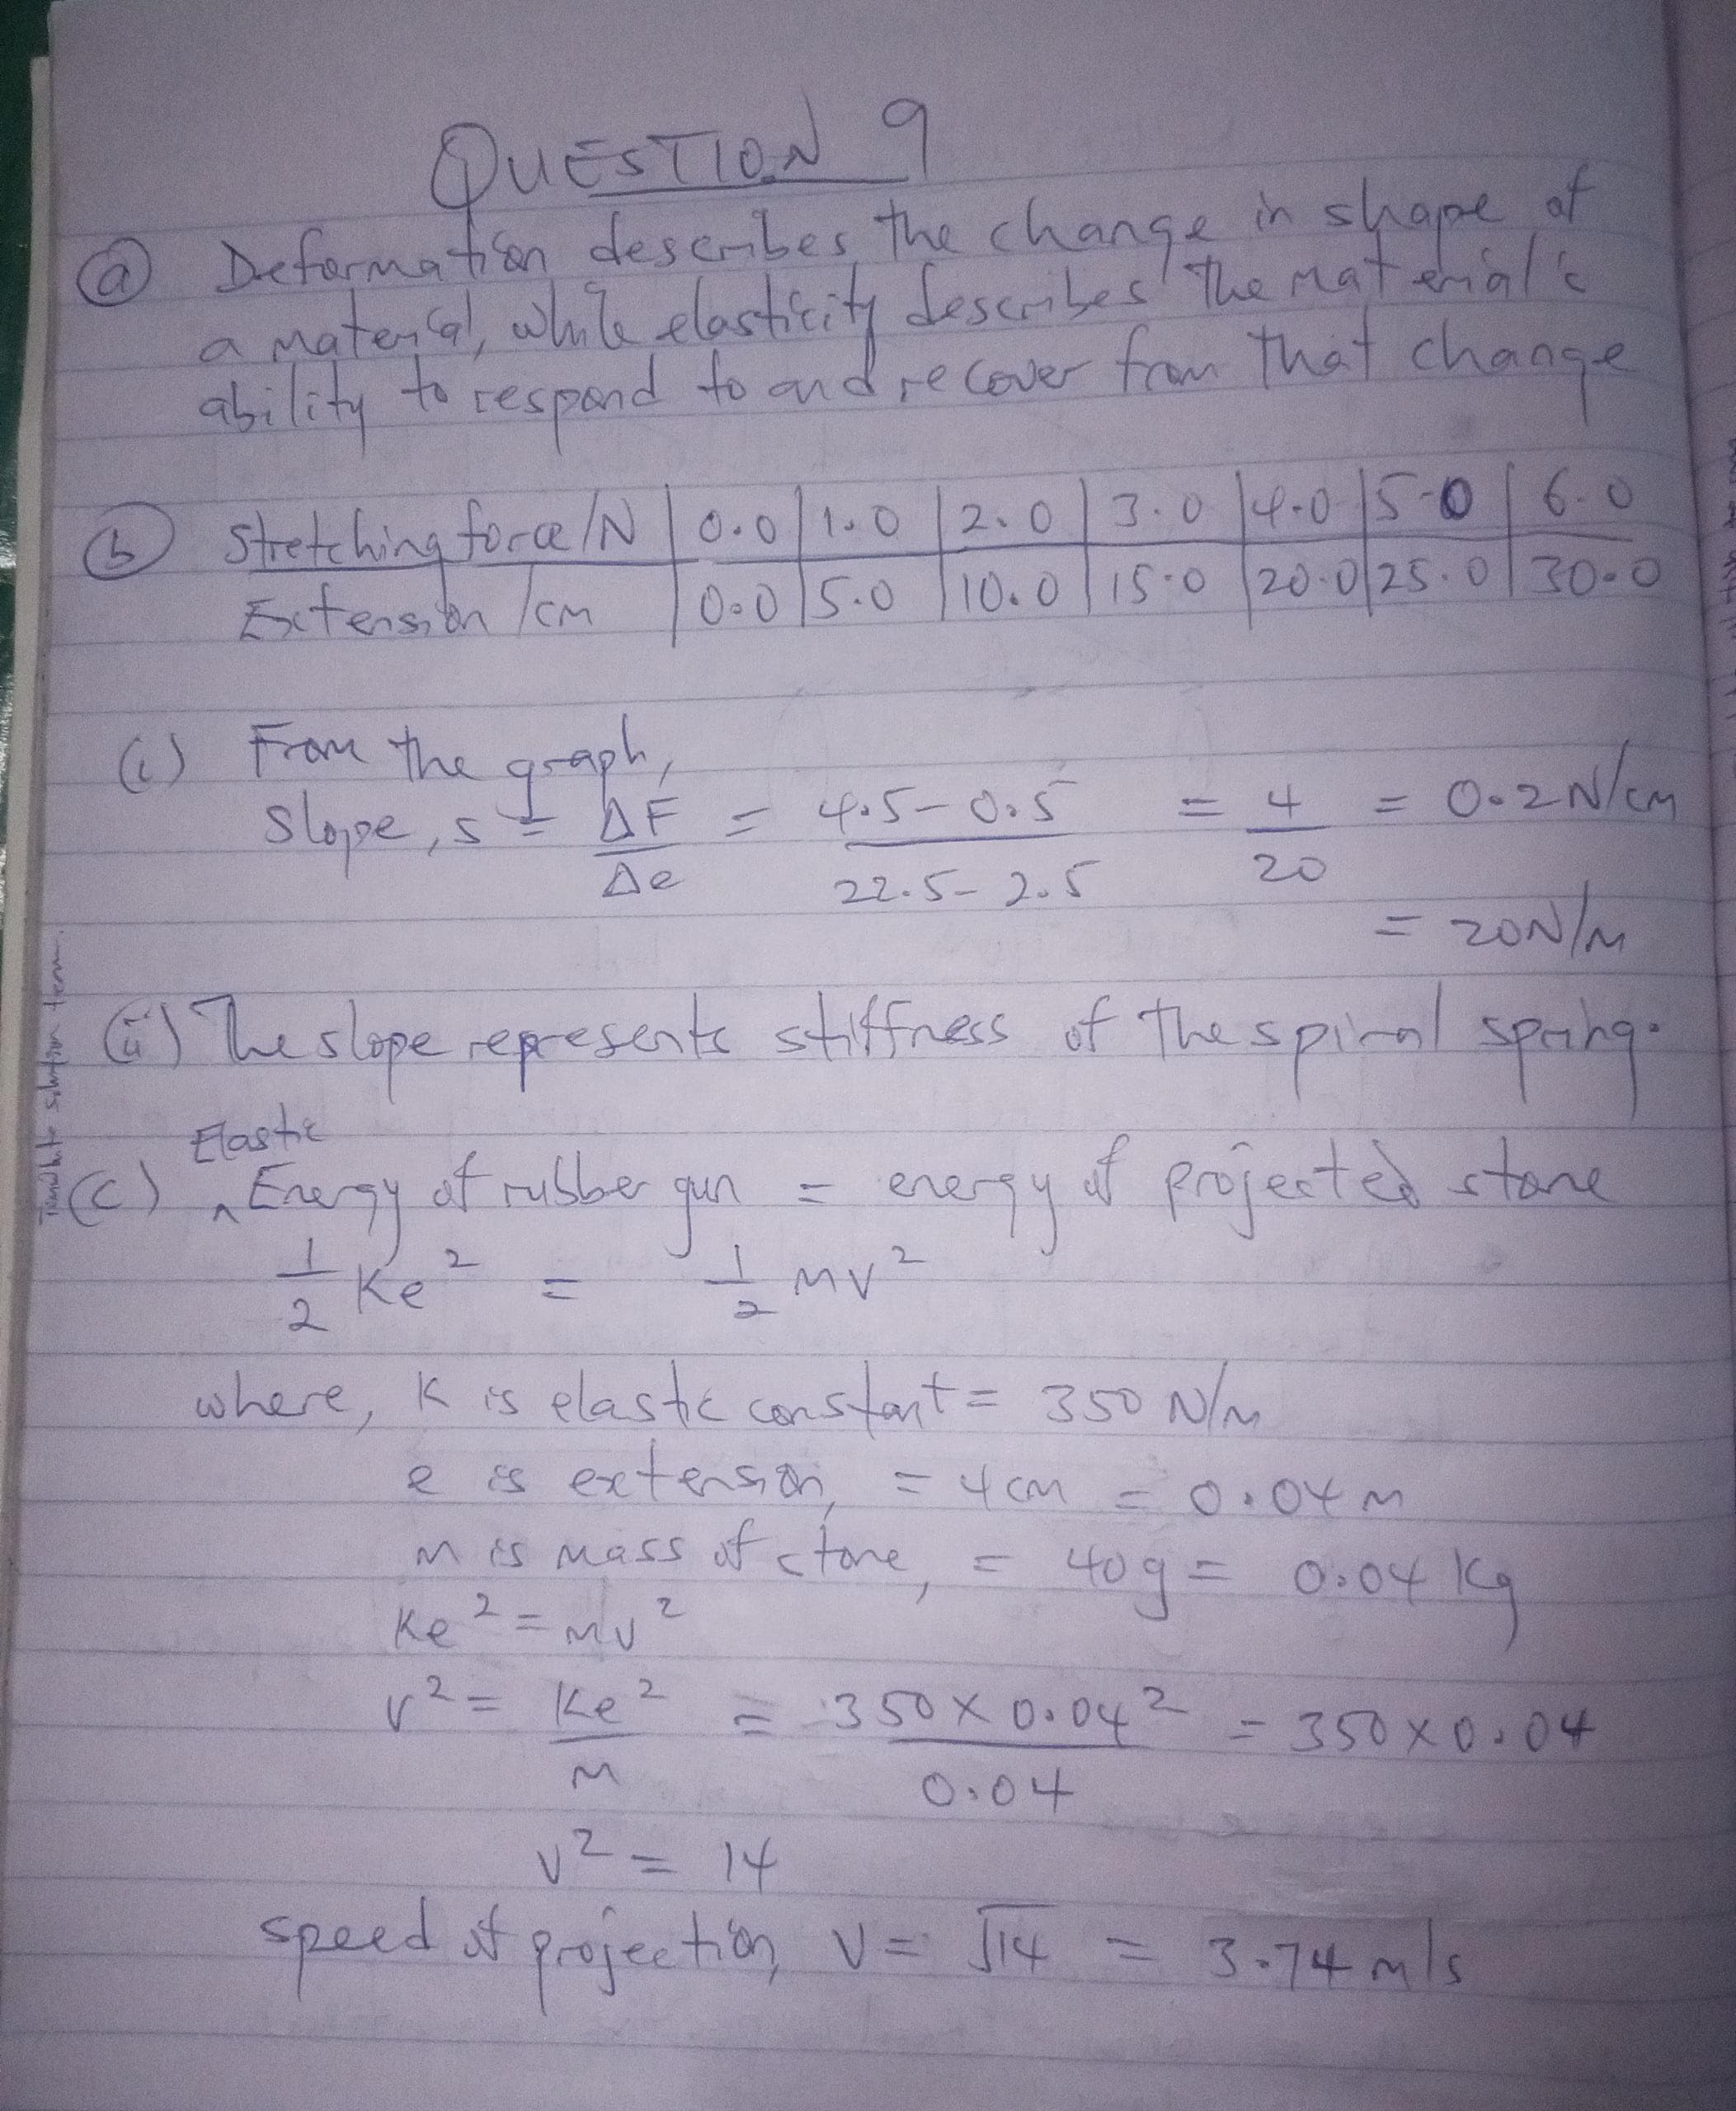 QUESTION 9
(a) Deformation describes the change in shape of
a material, while elasticity describes the material's
ability to respond to and recover from that change
(b) Stretching force/N | 0.0 | 1.0 | 2.0 | 3.0 | 4.0 | 5.0 | 6.0
Extension/cm | 0.0 | 5.0 | 10.0 | 15.0 | 20.0 | 25.0 | 30.0
(i) From the graph,
slope, s = ΔF/Δe = (4.5-0.5)/(22.5-2.5) = 4/20 = 0.2N/cm
= 20N/m
(ii) The slope represents stiffness of the spiral spring.
(c) Elastic Energy of rubber gun = energy of projected stone
1/2 Ke² = 1/2 mv²
where, K is elastic constant = 350 N/m
e is extension, = 4cm = 0.04m
m is mass of stone, = 40g = 0.04 kg
Ke² = mv²
v² = Ke²/m = 350 × 0.04²/0.04 = 350 × 0.04
v² = 14
speed of projection, v = √14 = 3.74 m/s
solution term.